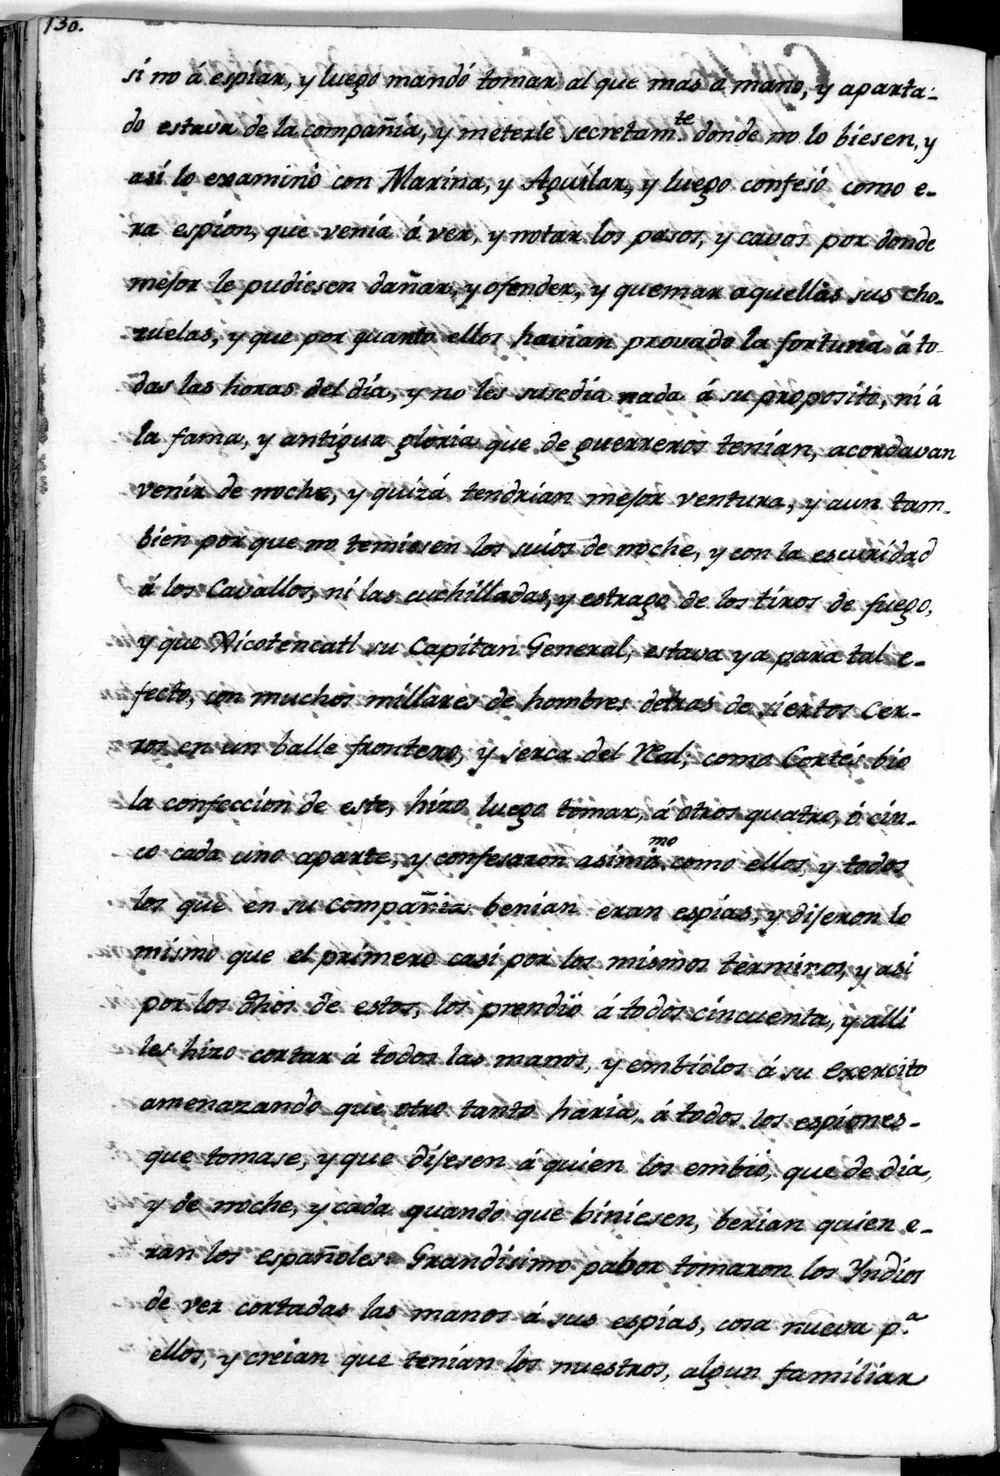 130.
si no á espiar, y luego mandó tomar al que mas a mano, y aparta-
do estava de la compañia, y meterle secretam.te donde no lo biesen, y
así lo examinó con Marina, y Aguilar, y luego confesó como e-
ra espión, que venía á ver, y notar los pasos, y cavos por donde
mejor le pudiesen dañar, y ofender, y quemar aquellas sus cho-
zuelas, y que por quanto ellos havian provado la fortuna á to-
das las horas del día, y no les susedia nada á su proposito, ni á
la fama, y antigua gloria que de guerreros tenían, acordavan
venir de noche, y quizá tendrían mejor ventura, y aun tam-
bien por que no temiesen los suios de noche, y con la escuridad
á los Cavallos, ni las cuchilladas, y estrago de los tiros de fuego,
y que Xicotencatl su Capitan General, estava ya para tal e-
fecto, con muchos millares de hombres detras de siertos Cer-
ros en un balle frontero, y serca del Real; como Cortés bio
la confeccion de este, hizo luego tomar, á otros quatro, ó cin-
co cada uno aparte, y confesaron asimis.mo como ellos, y todos
los que en su compañia benian eran espías, y dijeron lo
mismo que el primero casi por los mismos terminos, y asi
por los dhos de estos, los prendió á todos cincuenta, y alli
les hizo cortar á todos las manos, y embiólos á su exercito
amenazando que otro tanto haria, á todos los espiones-
que tomase, y que dijesen á quien los embió, que de dia,
y de noche, y cada quando que biniesen, berian quien e-
ran los españoles. Grandisimo pabor tomaron los Yndios
de ver cortadas las manos á sus espías, cosa nueva p.a
ellos, y creían que tenían los nuestros, algun familiar